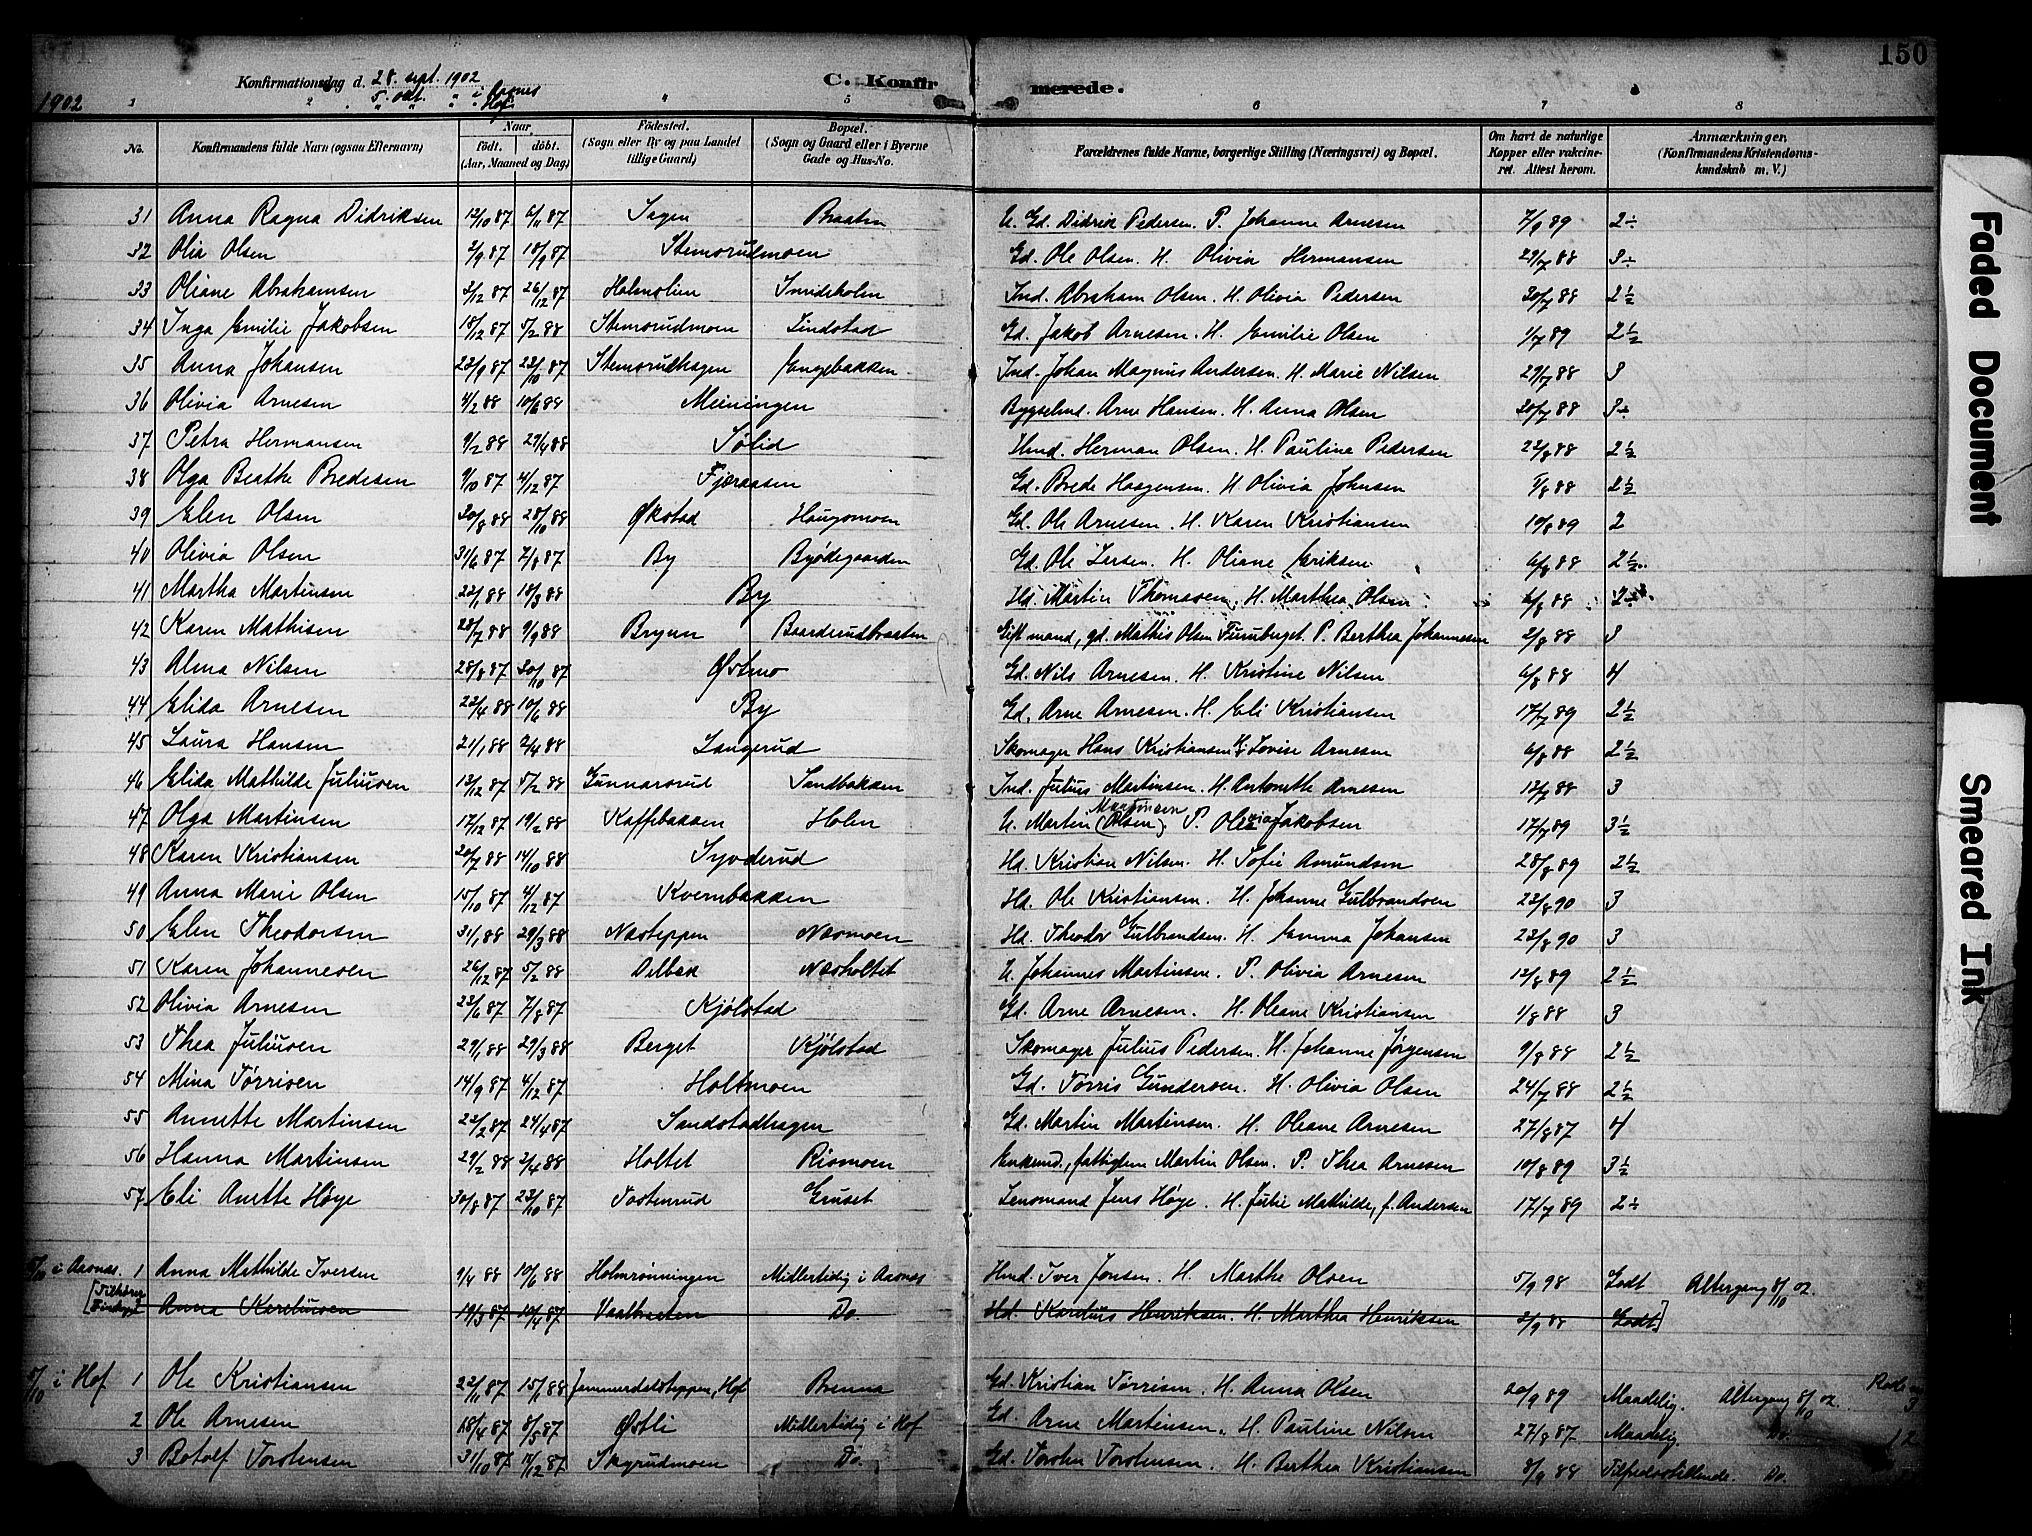 150
1902
Konfirmationsdag d. 28. sept. 1902 i Aasnes
5. okt. " i Hof.
C. Konfirmerede.
1 2 4 5 6 7 8
No. Konfirmandens fulde Navn (ogsaa Efternavn) Naar Födested. Bopæl. Forældrenes fulde Navne, borgerlige Stilling (Næringsvei) og Bopæl. Om havt de naturlige Anmærkninger.
födt. döbt. (Sogn eller By og paa Landet (Sogn og Gaard eller i Byerne Kopper eller vakcine- (Konfirmandens Kristendoms-
(Aar, Maaned og Dag) tillige Gaard) Gade og Hus-No. ret. Attest herom. kundskab m. V.)
31 Anna Ragna Didriksen 12/10 87 6/11 87 Sagen Braaten U. Gd. Didrik Pedersen. P. Johanne Arnesen 7/9 89 2÷
32 Olia Olsen 2/9 87 18/9 87 Stemsrudmoen Gd. Ole Olsen. H. Olivia Hermansen 29/7 88 3÷
33 Oliane Abrahamsen 2/12 87 26/12 87 Holmolien Ind. Abraham Olsen. H. Olivia Pedersen 30/7 88 2½
34 Inga Emilie Jakobsen 18/12 87 5/2 88 Stemsrudmoen Lindstad Gd. Jakob Arnesen. H. Emilie Olsen 1/7 89 2½
35 Anna Johansen 22/9 87 22/10 87 Stemsrudhagen Engebakken Ind. Johan Magnus Andersen. H. Marie Nilsen 29/7 88 3
36 Olivia Arnesen 4/2 88 10/6 88 Meiningen Bygselmd. Arne Hansen. H. Anna Olsen 30/7 88 3÷
37 Petra Hermansen 9/2 88 29/4 88 Sølid Hmd. Herman Olsen. H. Pauline Pedersen 22/8 88 2½
38 Olga Beathe Bredesen 9/10 87 4/12 87 Fjæraasen Gd. Brede Haagensen. H. Olivia Johnsen 1/8 88 2½
39 Elen Olsen 30/8 88 28/10 88 Økstad Haugsmoen Gd. Ole Arnesen. H. Karen Kristiansen 10/8 89 2
40 Olivia Olsen 31/6 87 7/8 87 By Byødegaarden Gd. Ole Larsen. H. Oliane Eriksen 6/8 88 2½
41 Martha Martinsen 22/1 88 18/3 88 By Hd. Martin Thomasen. H. Marthea Olsen 6/8 88 2÷
42 Karen Mathisen 28/7 88 9/9 88 Brynn Baarderudbraaten Gift mand, gd. Mathis Olsen Furuberget. P. Berthea Johannesen 2/8 88 3
43 Alma Nilsen 28/8 87 30/10 87 Østmo Gd. Nils Arnesen. H. Kristine Nilsen 6/8 88 4
44 Elida Arnesen 22/4 88 10/6 88 By Gd. Arne Arnesen. H. Eli Kristiansen 17/7 89 2½
45 Laura Hansen 21/1 88 2/4 88 Langerud Skomager Hans Kristiansen H. Lovise Arnesen 6/8 88 2½
46 Elida Mathilde Juliusen 12/12 87 5/2 88 Gunnarsrud Sandbakken Ind. Julius Martinsen. H. Antonette Arnesen 12/7 88 3
47 Olga Martinsen 17/12 87 19/2 88 Kaffebakken Holen U. Martin (Olsen) Martinsen P. Olivia Jakobsen 17/7 89 3½
48 Karen Kristiansen 20/7 88 14/10 88 Syvderud Hd. Kristian Nilsen. H. Sofie Amundsen 28/8 89 2½
49 Anna Marie Olsen 15/10 87 4/12 87 Kvernbakken Hd. Ole Kristiansen. H. Johanne Gulbrandsen 22/8 90 3
50 Elen Theodorsen 31/1 88 29/3 88 Næsteppen Næsmoen Hd. Theodor Gulbrandsen. H. Emma Johansen 22/8 90 3
51 Karen Johannesen 26/12 87 5/2 88 Delbæk Næsholtet U. Johannes Martinsen. P. Olivia Arnesen 12/8 89 2½
52 Olivia Arnesen 23/6 87 7/8 87 Kjølstad Gd. Arne Arnesen. H. Oleane Kristiansen 1/8 88 3
53 Thea Juliusen 29/1 88 29/3 88 Berget Kjølstad Skomager Julius Pedersen. H. Johanne Jørgensen 9/8 88 2½
54 Mina Tørrisen 14/9 87 4/12 87 Holtmoen Gd. Tørris Gundersen. H. Olivia Olsen 24/7 88 2½
55 Annette Martinsen 22/2 87 24/4 87 Sandstadhagen Gd. Martin Martinsen. H. Oleane Arnesen 27/8 87 4
56 Hanna Martinsen 29/2 88 2/4 88 Holtet Rismoen Enkemd., fattiglem Martin Olsen. P. Thea Arnesen 10/8 89 3½
57 Eli Anette Høye 30/8 87 23/10 87 Tostenrud Gruset Lensmand Jens Høye. H. Julie Mathilde, f. Andersen 17/7 89 2÷
5/10 i Aasnes. 1 Anna Mathilde Iversen 9/4 88 10/6 88 Holmrønningen Midlertidig i Aasnes Hmd. Iver Jonsen. H. Marthe Olsen 5/9 98 Godt Altergang 8/10 02.
[Tilhører Anna Kareliusen 19/3 87 10/4 87 Vaalbraaten Do. Hd. Karelius Henriksen. H. Marthea Henriksen 2/9 88 Godt]
5/10 i Hof 1 Ole Kristiansen 22/11 87 15/1 88 Jammerdalsteppen, Hof Brenna Gd. Kristian Tørrisen. H. Anna Olsen 20/9 89 Maadelig. Altergang 8/10 02. 3
2 Ole Arnesen 18/4 87 8/5 87 Østli Midlertidig i Hof Gd. Arne Martinsen. H. Pauline Nilsen 27/8 87 Maadelig. Do. 12
3 Botolf Torstensen 31/10 87 11/12 87 Skyrudmoen Do. Gd. Torsten Torstensen. H. Berthea Kristiansen 8/9 88 Tilfredsstillende. Do.
Faded Document
Smeared Ink